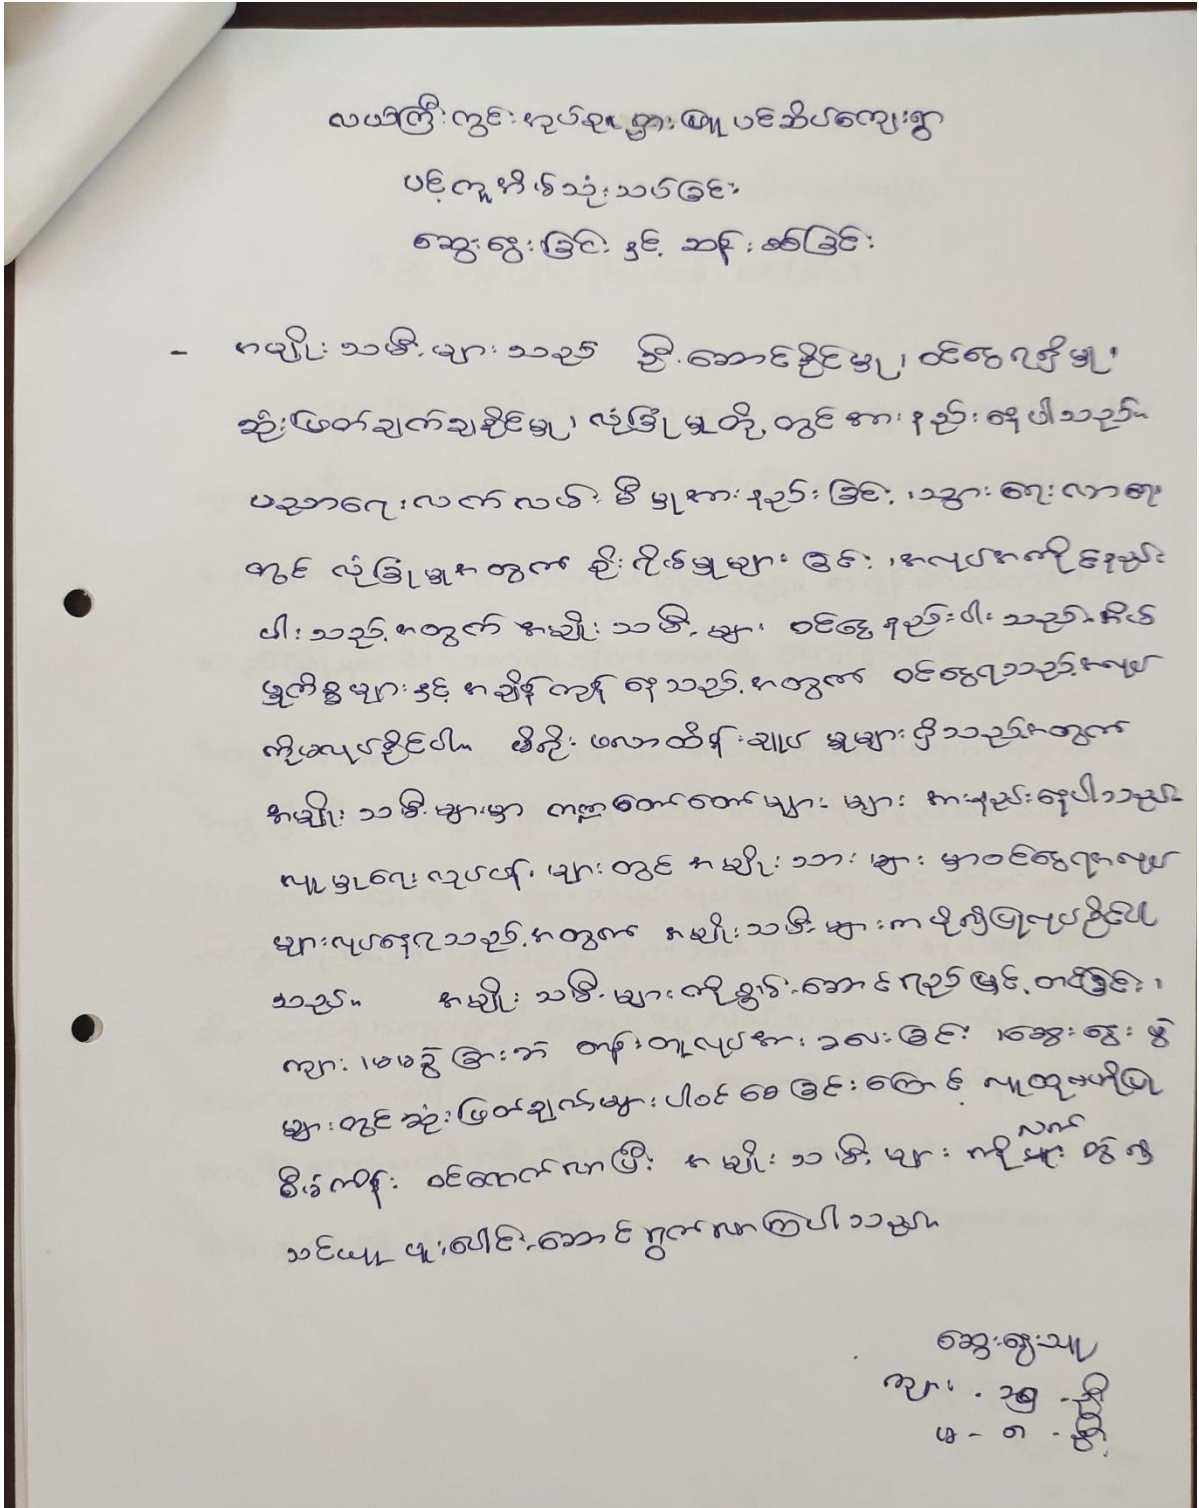 လယ်ကြီးကွင်းအုပ်စု ဌားဖြူပင်ဆိပ်ကျေးရွာ
ပင့်ကူအိမ်သုံးသပ်ခြင်း
ဆွေးနွေးခြင်းနှင့် ဆန်းစစ်ခြင်း
- အမျိုးသမီးများသည် ဦးဆောင်နိုင်မှု၊ ဝင်ငွေရရှိမှု၊
ဆုံးဖြတ်ချက်ချနိုင်မှု၊ လုံခြုံမှုတို့တွင်အားနည်းနေပါသည်။
ပညာရေးလက်လှမ်းမီမှုအားနည်းခြင်း၊သွားရေးလာရေး
တွင် လုံခြုံမှုအတွက် စိုးရိမ်မှုများခြင်း၊အလုပ်အကိုင်နည်း
ပါးသည့်အတွက် အမျိုးသမီးများ ဝင်ငွေနည်းပါးသည်။အိမ်
မှုကိစ္စများနှင့် အချိန်ကုန်နေသည့်အတွက် ဝင်ငွေရသည့်အလုပ်
ကိုမလုပ်နိုင်ပါ။ မိရိုးဖလာထိန်းချုပ်မှုများရှိသည့်အတွက်
အမျိုးသမီးများမှာ ကဏ္ဍတော်တော်များများ အားနည်းနေပါသည်။
လူမှုရေးလုပ်ငန်းများတွင် အမျိုးသားများမှာဝင်ငွေရအလုပ်
များလုပ်နေရသည့်အတွက် အမျိုးသမီးများကပို၍ပြုလုပ်နိုင်ပါ
သည်။ အမျိုးသမီးများကိုစွမ်းဆောင်ရည်မြှင့်တင်ခြင်း၊
ကျား၊မမခွဲခြားဘဲ တန်းတူလုပ်အားခပေးခြင်း၊ဆွေးနွေးပွဲ
များတွင်ဆုံးဖြတ်ချက်များပါဝင်စေခြင်းကြောင့် လူထုဗဟိုပြု
စီမံကိန်း ဝင်ရောက်လာပြီး အမျိုးသမီးများကိုလက်တွဲ၍
သင်ယူပူးပေါင်းဆောင်ရွက်လာကြပါသည်။
ဆွေးနွေးသူ
ကျား -
မ - ၈ - ဦး